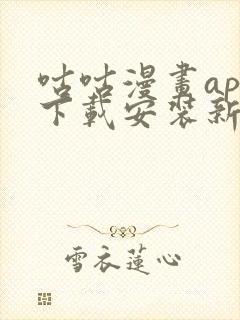 咕咕漫畫ap
下載安裝新
雪衣蓮心